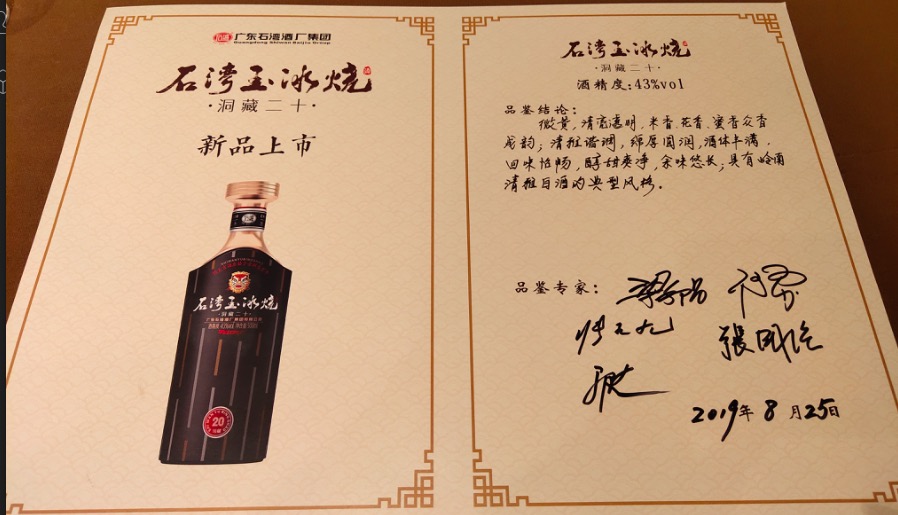 广东石湾酒厂集团
Guangdong Shiwan Baijiu Group
石湾玉冰烧
·洞藏二十·
新品上市
石湾玉冰烧
洞藏二十
20
石湾玉冰烧
·洞藏二十·
酒精度:43%vol
品鉴结论:
微黄,清亮透明,米香、花香、蜜香众香
成韵;清雅谐调,绵厚圆润,酒体丰满,
回味怡畅,醇甜爽净,余味悠长;具有岭南
清雅白酒的典型风格。
品鉴专家:
2019年8月25日